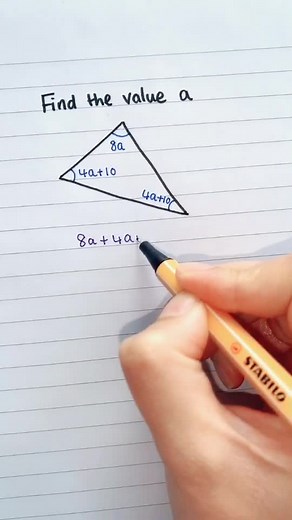 Find the value a
8a
4a+10
4a+10
8a+4a+
STABILO